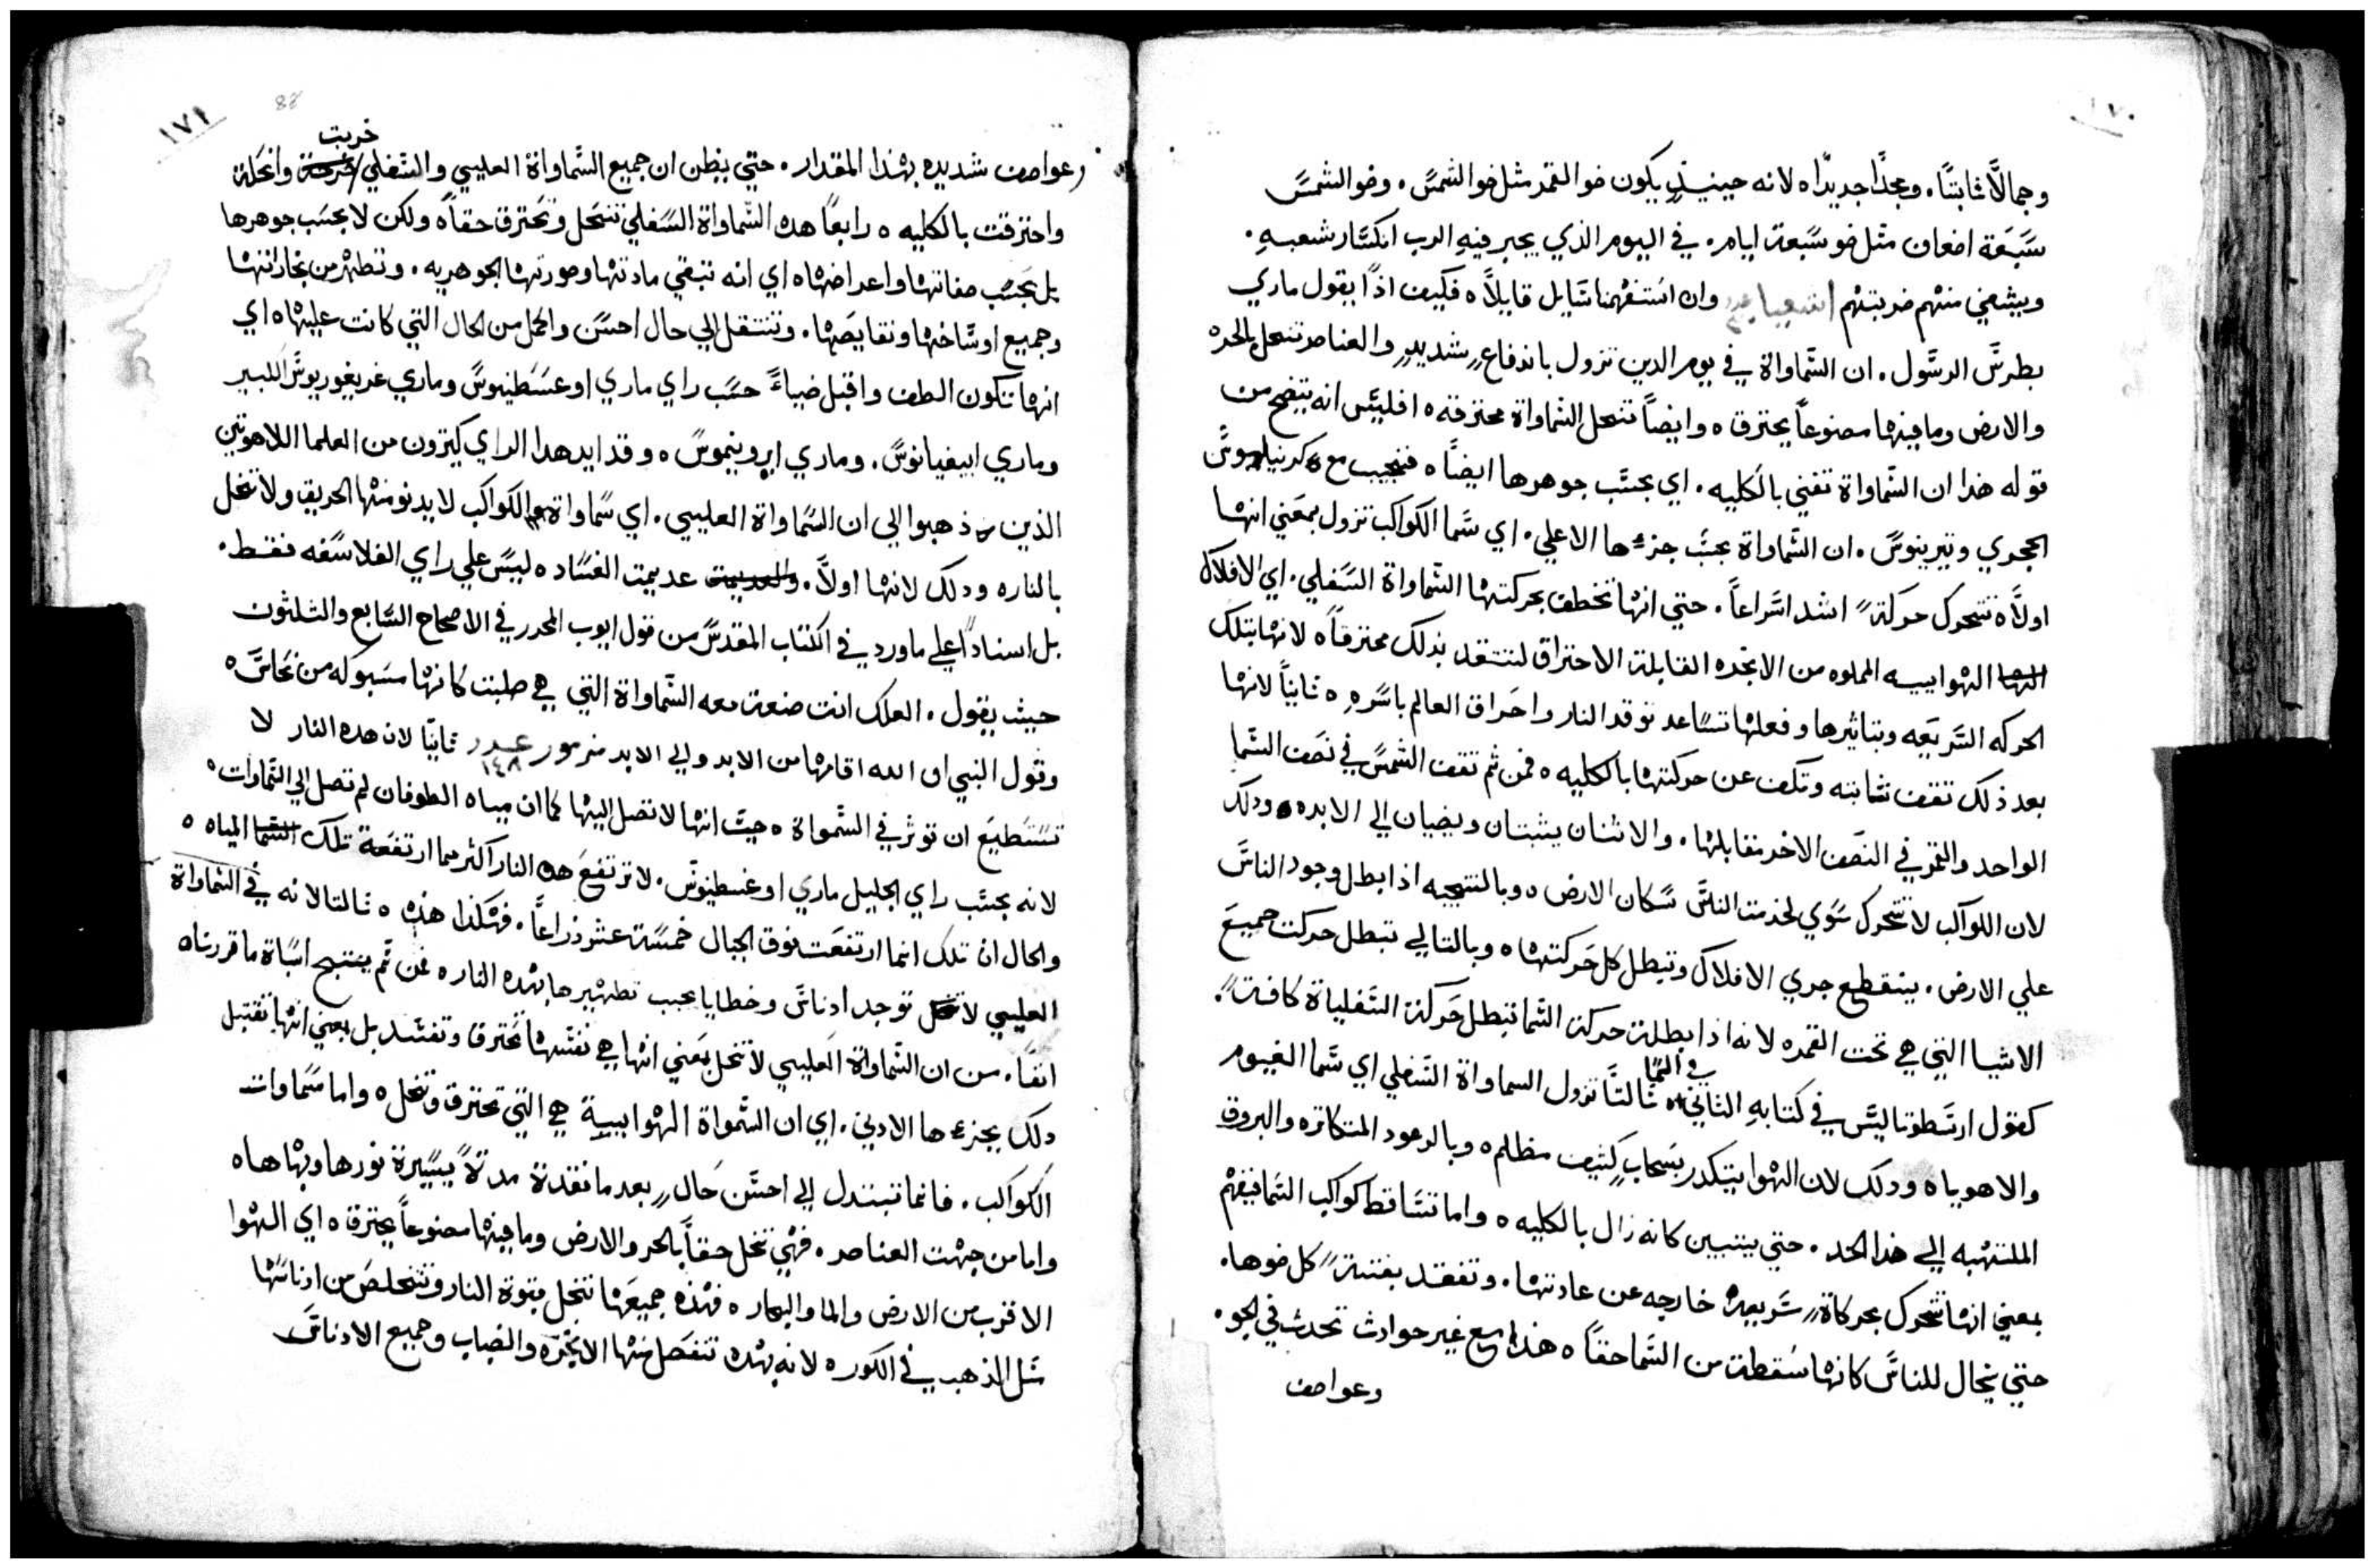 ١٧٠
وجمالًا ثابتًا. ومجدًا جديدًا ه لانه حينيذٍ يكون ضو القمر مثل ضو الشمس. وضو الشمس
سبعة اضعاف مثل ضو سبعة ايام. في اليوم الذي يجبر فيهِ الرب انكسار شعبهِ.
ويشفي منهم ضربتهم اشعيا وان استفهمنا سايل قايلاً ه فكيف اذًا يقول ماري
بطرس الرسول. ان السماواة في يوم الدين تزول باندفاعٍ شديدٍ والعناصر تنحل بالحره
والارض وما فيها مصنوعاً يحترق ه وايضاً تنحل السماواة محترقه ه افليس انه يتضح من
قوله هذا ان السماواة تفني بالكليه. اي بحسب جوهرها ايضاً ه فنجيب مع كرنيليوس
الحجري وتيرينوس. ان السماواة بحسب جزءها الاعلي. اي سما الكواكب تزول بمعني انها
اولاً ه تتحرك حركةً اشد اسراعاً. حتي انها تخطف بحركتها السماواة السفلي. اي الافلاك
الهوايييه المملوه من الابخره القابلة الاحتراق لتتقد بذلك محترقاً ه لانها بتلك
الحركه السريعه وبتاثيرها وفعلها تساعد توقد النار واحراق العالم باسرهِ ه ثانياً لانها
بعد ذلك تقف ثابته وتكف عن حركتها بالكليه ه فمن ثم تقف الشمس في نصف السما
الواحد والقمر في النصف الاخر مقابلها. والاثنان يثبتان ويضيان الي الابده ودلك
لان الكواكب لا تتحرك سوي لخدمت الناس سكان الارض ه وبالنتيجه اذا بطل وجود الناس
علي الارض. ينقطع جري الافلاك وتبطل كل حركتها ه وبالتالي تبطل حركت جميع
الاشيا التي هي تحت القمره لانه اذا بطلة حركة السما تبطل حركة السفلياة كافةً.
كقول ارسطوتاليس في كتابهِ الثاني في السما ه ثالثاً تزول السماواة السفلي اي سما الغيوم
والاهوياه ودلك لان الهوا يتكدر بسحابٍ كثيف مظلم ه وبالرعود المتكاتره والبروق
الملتهبه الي هذا الحد. حتي يتبين كانه زال بالكليه ه واما تساقط كواكب السما فيفهم
بمعني انها تتحرك بحركاةٍ سريعه خارجه عن عادتها. وتفقد بغتةً كل ضوها.
حتي يخال للناس كانها سقطة من السما حقاً ه هذا مع غير حوادث تحدث في الجو.
وعواصف
١٧١
88
وعواصف شديده بهذا المقدار. حتي يظن ان جميع السماواة العليي والسفلي خربت وانحلة
واحترقت بالكليه ه رابعاً هده السماواة السفلي تنحل وتحترق حقاً ه ولكن لا بحسب جوهرها
بل بحسب صفاتها واعراضها ه اي انه تبقي مادتها وصورتها الجوهريه. وتطهر من بخاراتها
وجميع اوساخها ونقايصها. وتنتقل الي حال احسن واكمل من الحال التي كانت عليها ه اي
انها تكون الطف واقبل ضياءً حسب راي ماري اوغسطينوس وماري غريغوريوس الكبير
وماري ابيفيانوس. وماري ايرونيموس ه وقد ايد هدا الراي كيترون من العلما اللاهوتين
الذين ذهبوا الي ان السماواة العليي. اي سماواة الكواكب لا يدنو منها الحريق ولا تنحل
بالناره ودلك لانها اولاً. عديمت الفساد ه ليس علي راي الفلاسفه فقط.
بل اسناداً علي ما ورد في الكتاب المقدس من قول ايوب المحرر في الاصحاح السابع والثلثون
حيث يقول. العلك انت صنعة معه السماواة التي هي صلبت كانها مسبوكه من نحاس ه
وقول النبي ان الله اقامها من الابد والي الابد مزمور عدد ١٤٨ ثانيًا لان هده النار لا
تستطيع ان توثر في السمواة ه حيث انها لا تصل اليها كما ان مياه الطوفان لم تصل الي السماوات ه
لانه بحسب راي الجليل ماري اوغسطينوس. لا ترتفع هده النار اكثر مما ارتفعة تلك المياه ه
والحال ان تلك انما ارتفعت فوق الجبال خمسة عشر ذراعاً. فهكذا هذه ه ثالثا لانه في السماواة
العليي لا توجد ادناس وخطايا يجب تطهيرها بهده الناره فمن ثم ينتج اتباة ما قررناه
انفاً. من ان السماواة العليي لا تنحل بمعني انها هي نفسها تحترق وتفسد بل بمعني انها تقتبل
دلك بجزءها الادني. اي ان السمواة الهواييية هي التي تحترق وتنحل ه واما سماوات
الكواكب. فانما تبتدل الي احسن حالٍ بعد ما تفقدة مدةً يسيرة نورها وبهاها ه
واما من جهت العناصر. فهي تنحل حقاً بالحر والارض وما فيها مصنوعاً يحترق ه اي الهوا
الاقرب من الارض والما والبحاره فهذه جميعها تنحل بقوة النار وتتخلص من ادناسها
مثل الذهب في الكوره لانه بهده تنفصل منها الابخره والضباب وجميع الادناس